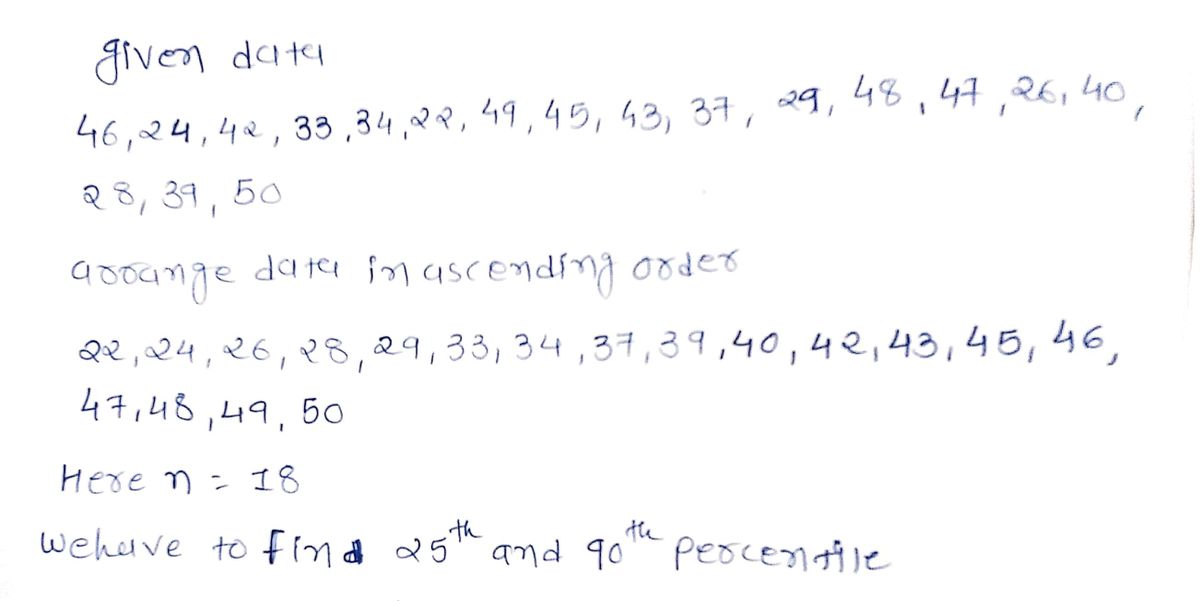 given data
46,24,42,33,34,22,49,45,43,37,29,48,47,26,40,
28,39,50
arrange data in ascending order
22,24,26,28,29,33,34,37,39,40,42,43,45,46,
47,48,49,50
Here n = 18
we have to find 25th and 90th percentile